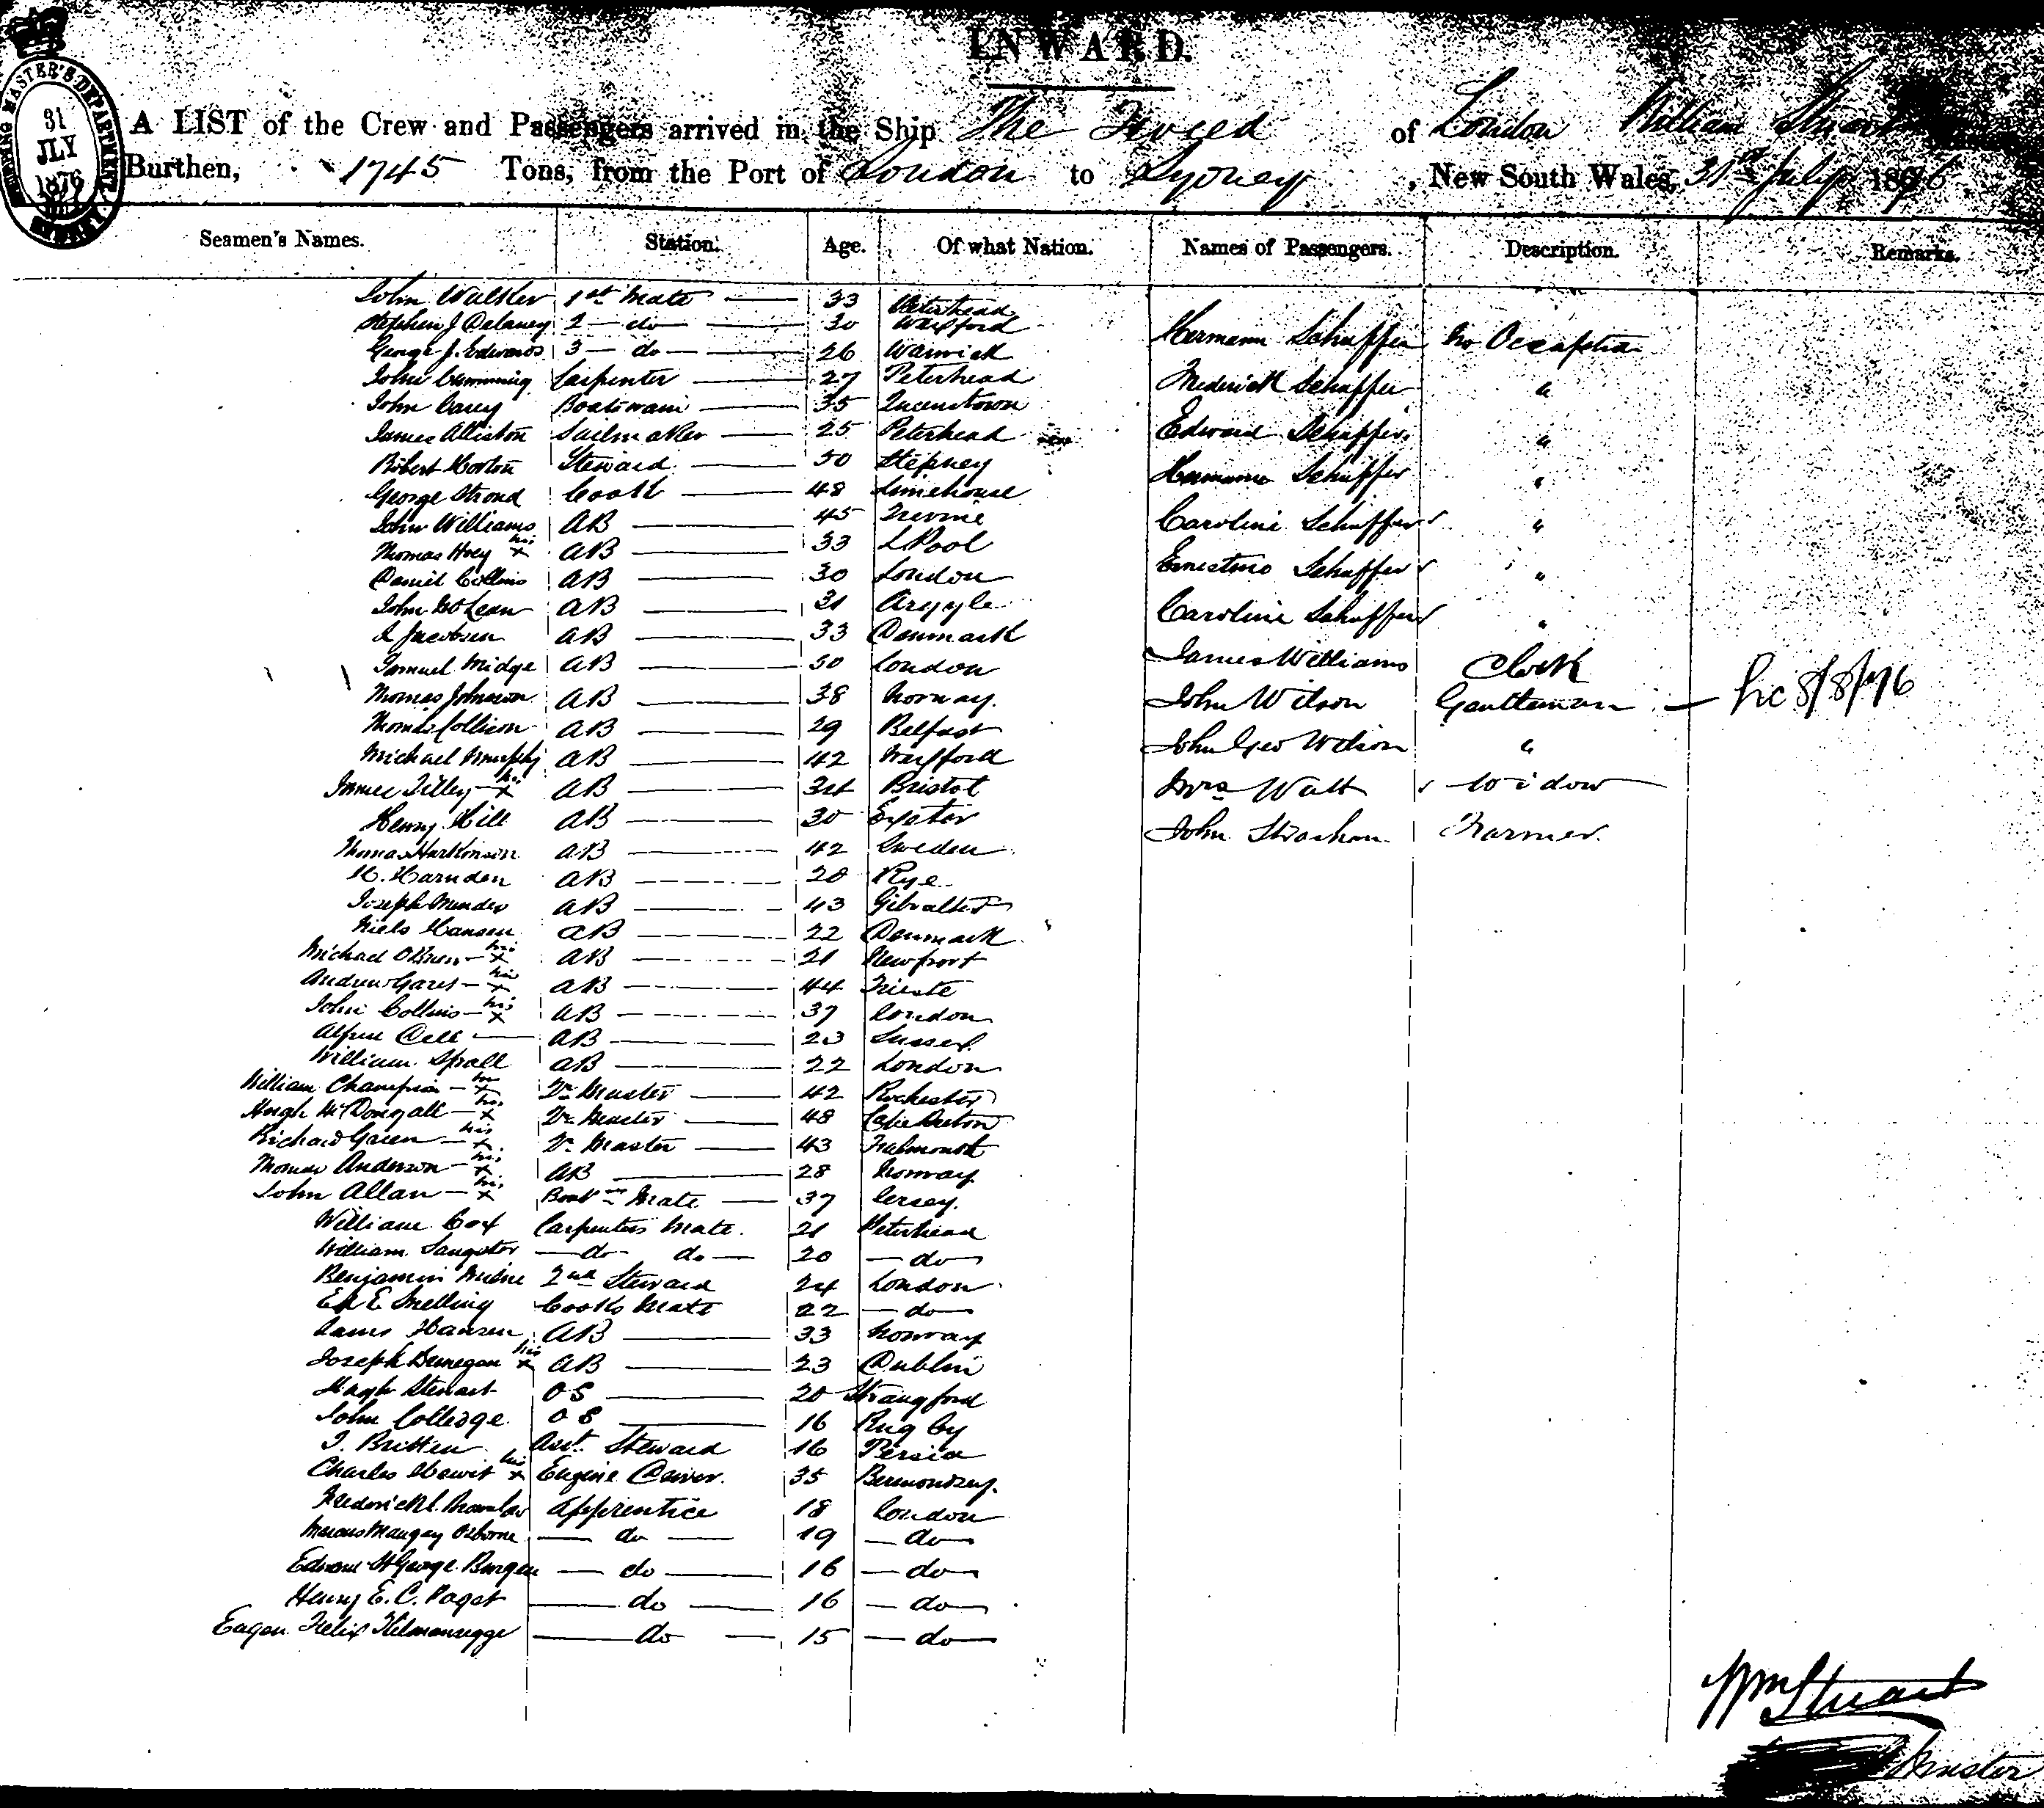 INWARD.
SHIPPING MASTER'S DEPARTMENT
31
JLY
1876
SYDNEY
A LIST of the Crew and Passengers arrived in the Ship The Tweed of London William Stuart
Burthen, 1745 Tons, from the Port of London to Sydney, New South Wales, 31st July 1876
Seamen's Names. Station. Age. Of what Nation. Names of Passengers. Description. Remarks.
John Walker 1st Mate 33 Peterhead
Stephen J Delaney 2 do 30 Wexford
Hermann Schaffer No Occupation
George J. Edwards 3 do 26 Warwick
John Cumming Carpenter 27 Peterhead
Frederick Schaffer "
John Carey Boatswain 35 Queenstown
James Alliston Sailmaker 25 Peterhead
Edward Schaffer "
Robert Horton Steward 50 Stepney
Schaffer "
George Strond Cook 48 Limehouse
John Williams AB 45 Irvine
Caroline Schaffer "
Thomas Hoey his x AB 33 LPool
Daniel Collins AB 30 London
Ernestine Schaffer "
John McLean AB 31 Argyle
Caroline Schaffer "
Jacobsen AB 33 Denmark
Samuel Midge AB 30 London
James Williams Clerk
Thomas Johnson AB 38 Norway.
John Wilson Gentleman 8/8/76
Thomas Collison AB 29 Belfast
John Geo Wilson "
Michael Murphy AB 42 Wexford
James Tilley his x AB 34 Bristol
Mrs Watt Widow
Henry Hill AB 30 Exeter
John Strachan Farmer.
Thomas AB 42 Sweden
H. Harnden AB 20 Rye
Joseph Mendes AB 43 Gibralter
Niels Hansen AB 22 Denmark
Michael OBrien his x AB 21 Newport
Andrew his x AB 44 Trieste
John Collins his x AB 37 London
Alfred Dell AB 23 Sussex
William Sprall AB 22 London
William Champion his x Qr Master 42 Rochester
Hugh McDongall his x Qr Master 48 Cape Breton
Richard Green his x Qr Master 43 Falmouth
Thomas Anderson his x AB 28 Norway
John Allan his x Boatsn Mate 37 Jersey.
William Cox Carpenters Mate. 21 Peterhead
William Sangster do do 20 do
Benjamin Milne 2nd Steward 24 London
Ed E Snelling Cooks Mate 22 do
Hansen AB 33 Norway
Joseph his x AB 23 Dublin
Hugh Stewart OS 20 Strangford
John Colledge OS 16 Rugby
J. Britten Asst. Steward 16 Persia
Charles Hewit his x Engine Driver. 35 Bermondsey.
Frederick Apprentice 18 London
Osborne do 19 do
Edward St George Burgen do 16 do
Henry E. C. Paget do 16 do
Felix Kilmansegge do 15 do
Wm Stuart
Master